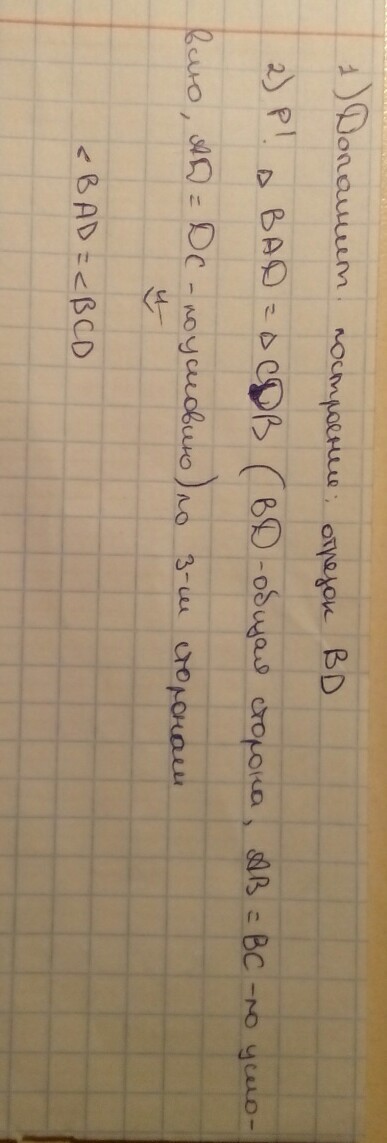 1) Дополнит. построение: отрезок BD
2) Р! △ BAD = △ CDB (BD - общая сторона, AB = BC - по усло-
вию, AD = DC - по условию) по 3-м сторонам
⇓
< BAD = < BCD